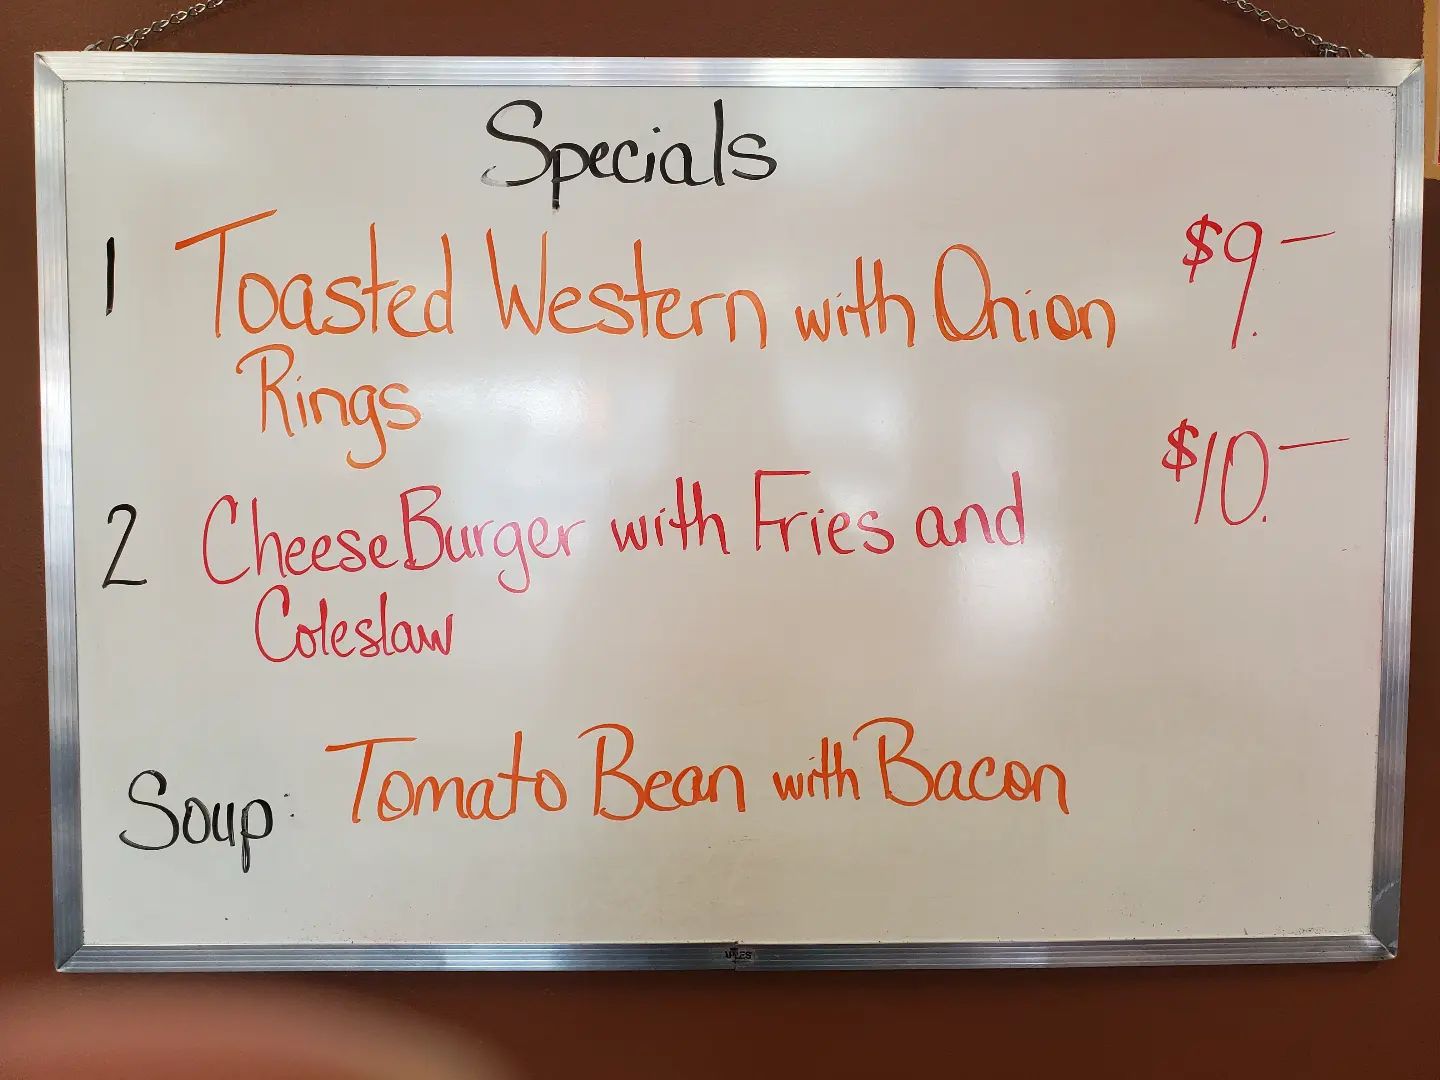 Specials
1 Toasted Western with Onion $9.—
Rings
2 CheeseBurger with Fries and $10.—
Coleslaw
Soup: Tomato Bean with Bacon